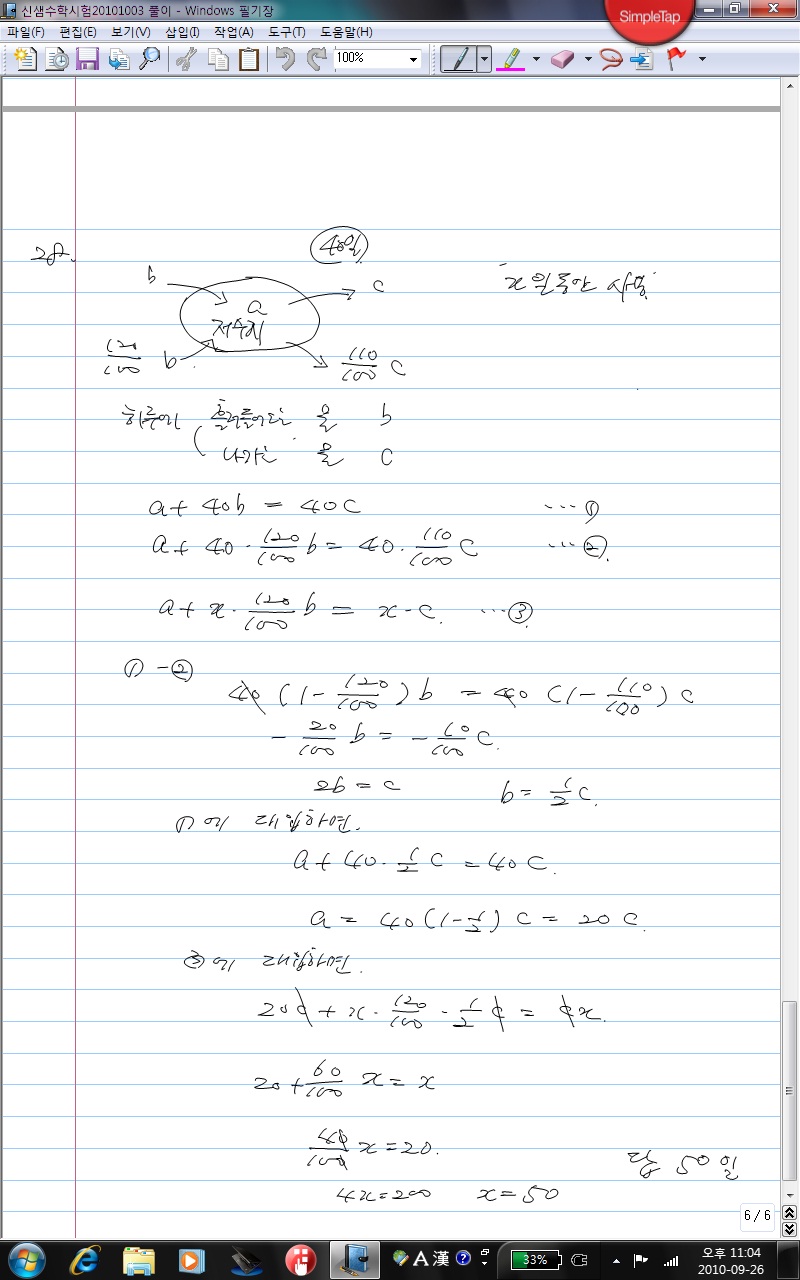 신샘수학시험20101003 풀이 - Windows 필기장
SimpleTap
파일(F) 편집(E) 보기(V) 삽입(I) 작업(A) 도구(T) 도움말(H)
100%
28.
40일
x일동안 사용
b
c
a
저수지
120/100 b
110/100 c
하루에 흘러들어오는 물 b
나가는 물 c
a + 40b = 40c ... ①
a + 40 · 120/100 b = 40 · 110/100 c ... ②
a + x · 120/100 b = x · c. ... ③
① - ②
40 (1 - 120/100) b = 40 (1 - 110/100) c
- 20/100 b = - 10/100 c.
2b = c b = 1/2 c.
①에 대입하면.
a + 40 · 1/2 c = 40c.
a = 40 (1 - 1/2) c = 20c.
③에 대입하면.
20c + x · 120/100 · 1/2 c = cx.
20 + 60/100 x = x
40/100 x = 20.
4x = 200 x = 50
답 50일
6 / 6
A 漢
33%
오후 11:04
2010-09-26